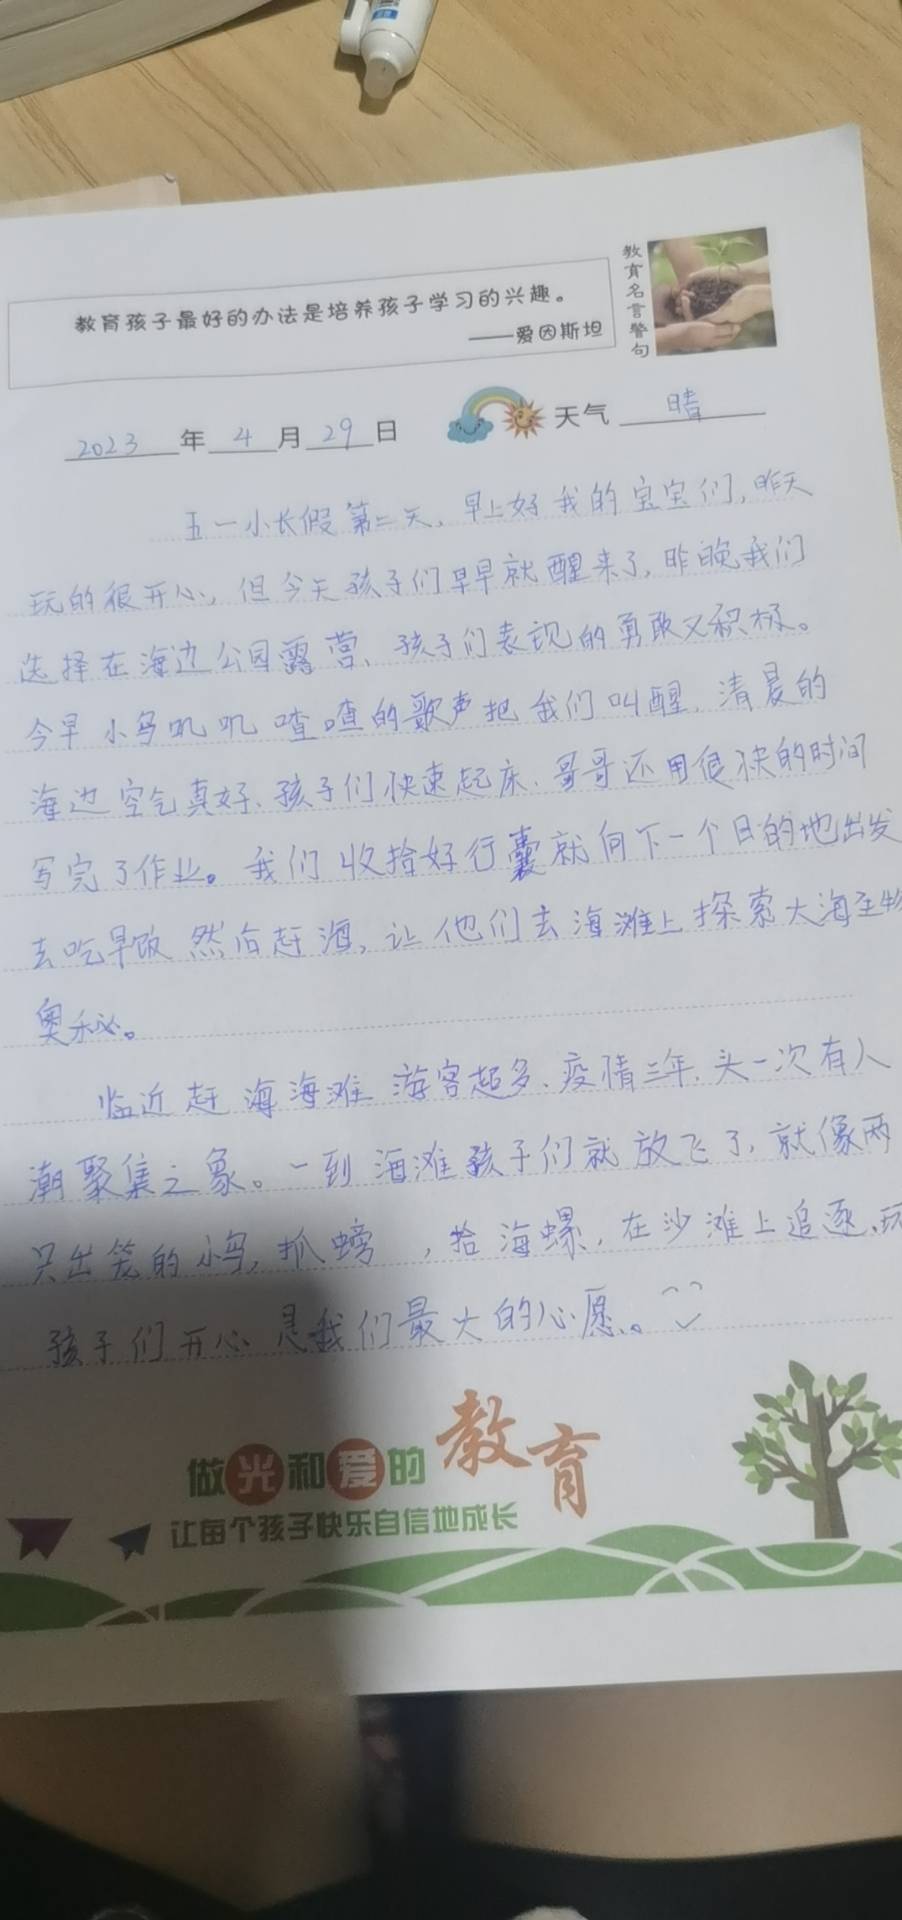 教育孩子最好的办法是培养孩子学习的兴趣。
——爱因斯坦
教育名言警句
2023年4月29日 天气 晴
五一小长假第二天、早上好我的宝宝们,昨天
玩的很开心,但今天孩子们早早就醒来了,昨晚我们
选择在海边公园露营、孩子们表现的勇敢又积极。
今早小鸟叽叽喳喳的歌声把我们叫醒,清晨的
海边空气真好、孩子们快速起床、哥哥还用很快的时间
写完了作业。我们收拾好行囊就向下一个目的地出发
去吃早饭 然后赶海,让他们去海滩上探索大海生物
奥秘。
临近赶海海滩游客超多、疫情三年、头一次有人
潮聚集之象。一到海滩孩子们就放飞了,就像两
只出笼的小鸟,抓螃 ,拾海螺,在沙滩上追逐、玩
孩子们开心是我们最大的心愿。
做光和爱的教育
让每个孩子快乐自信地成长